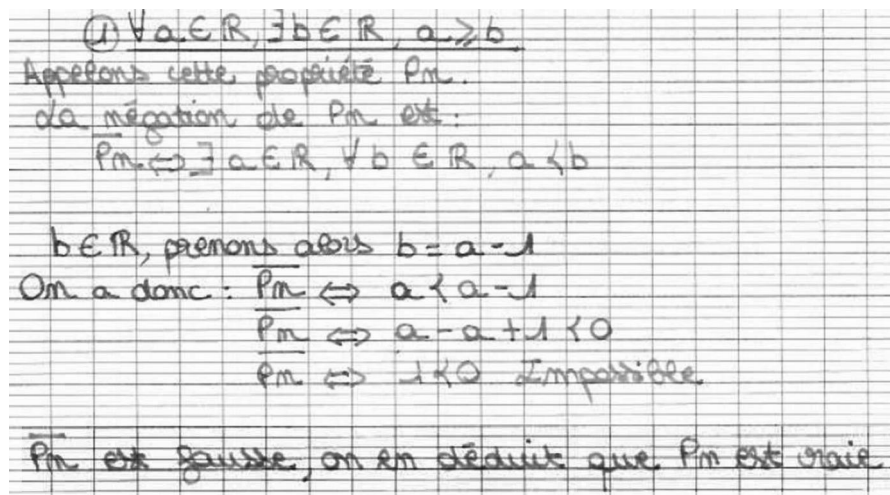 ① ∀a∈ℝ, ∃b∈ℝ, a≥b
Appelons cette propriété Pn.
La négation de Pn est:
P̅n̅ ⇔ ∃a∈ℝ, ∀b∈ℝ, a<b
b∈ℝ, prenons alors b=a-1
On a donc: P̅n̅ ⇔ a<a-1
P̅n̅ ⇔ a-a+1<0
P̅n̅ ⇔ 1<0 Impossible
P̅n̅ est fausse, on en déduit que Pn est vraie